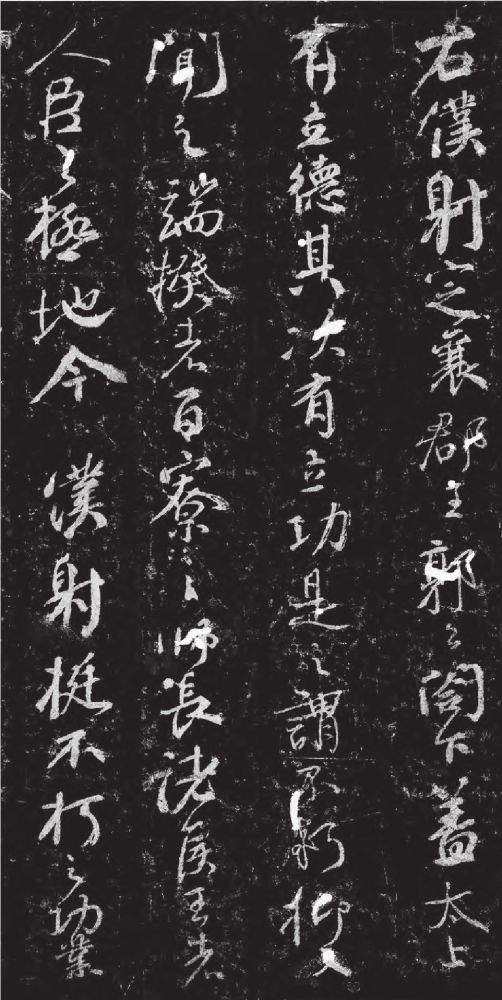 右僕射定襄郡王郭公閤下蓋太上
有立德其次有立功是之謂不朽抑又
聞之端揆者百寮之師長諸侯王者
人臣之極地今僕射挺不朽之功業